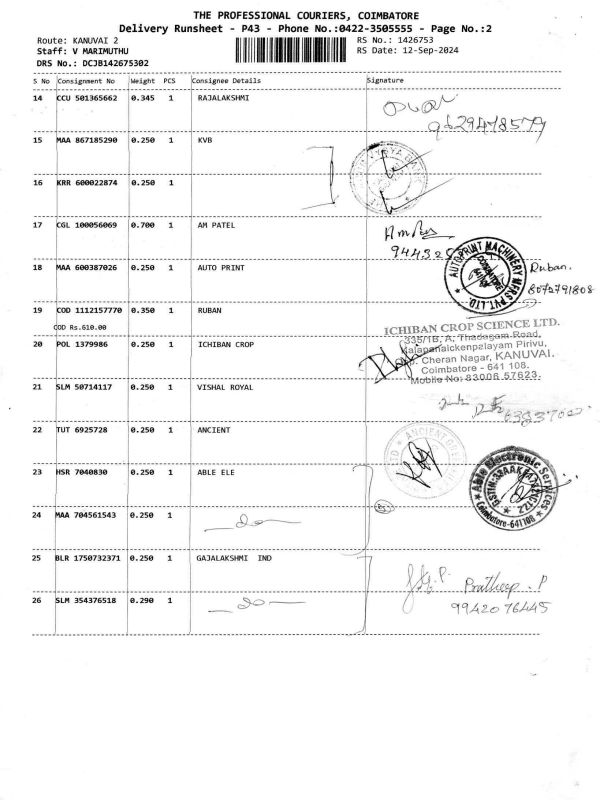 THE PROFESSIONAL COURIERS, COIMBATORE
Delivery Runsheet - P43 - Phone No.:0422-3505555 - Page No.:2
Route: KANUVAI 2
RS No.: 1426753
Staff: V MARIMUTHU
RS Date: 12-Sep-2024
DRS No.: DCJB142675302
S No Consignment No Weight PCS Consignee Details Signature
14 CCU 501365662 0.345 1 RAJALAKSHMI
9629478577
15 MAA 867185290 0.250 1 KVB
16 KRR 600022874 0.250 1
17 CGL 100056069 0.700 1 AM PATEL
18 MAA 600387026 0.250 1 AUTO PRINT
AUTOPRINT MACHINERY MFRS PVT. LTD.
Ruban.
8072791808
19 COD 1112157770 0.350 1 RUBAN
COD Rs.610.00
20 POL 1379986 0.250 1 ICHIBAN CROP
ICHIBAN CROP SCIENCE LTD.
335/1B, A, Thadagam Road,
Kalapanaickenpalayam Pirivu,
Cheran Nagar, KANUVAI.
Coimbatore - 641 108.
Mobile No: 83006 57623.
21 SLM 50714117 0.250 1 VISHAL ROYAL
22 TUT 6925728 0.250 1 ANCIENT
23 HSR 7040830 0.250 1 ABLE ELE
Able Electronic Services
Coimbatore-641108
24 MAA 704561543 0.250 1
25 BLR 1750732371 0.250 1 GAJALAKSHMI IND
26 SLM 354376518 0.290 1
Pratheep . P
99420 76445